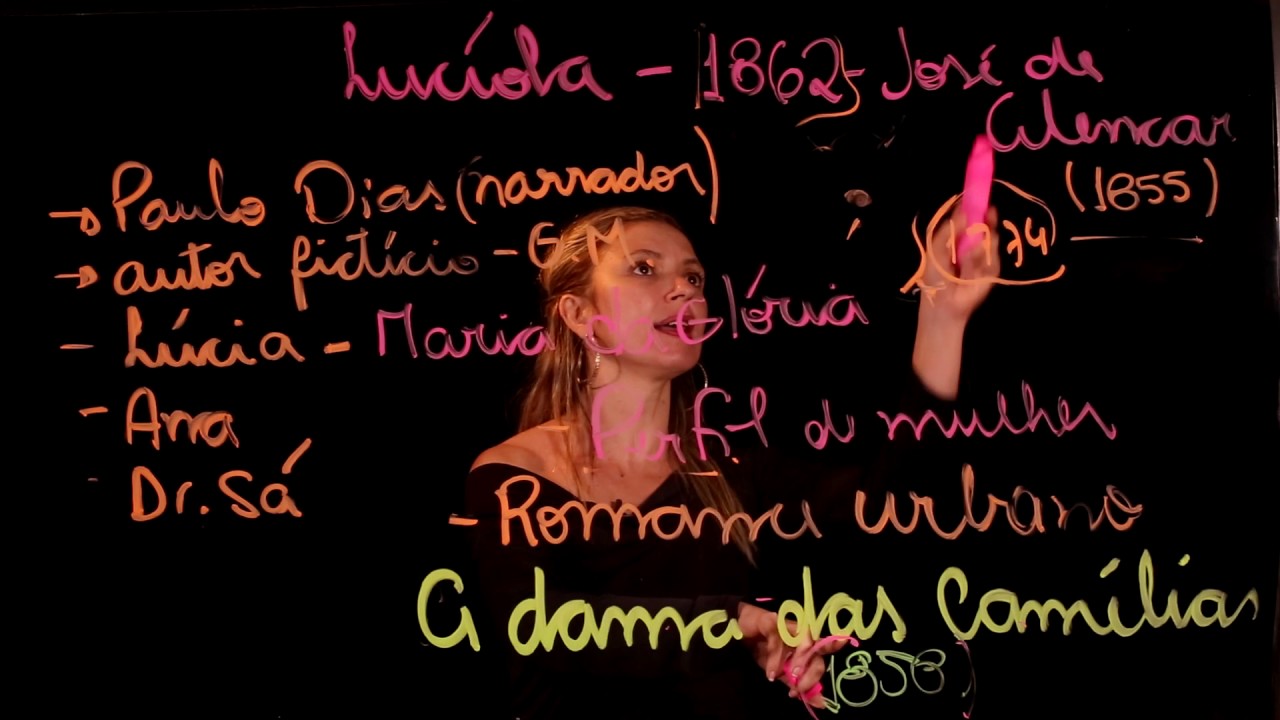 Lucíola - 1862 - José de
Alencar
→ Paulo Dias (narrador)
(1855)
→ autor fictício - G M
1974
- Lúcia - Maria da Glória
- Ana
- Perfil de mulher
- Dr. Sá
- Romance urbano
A dama das Camílias
(1858)